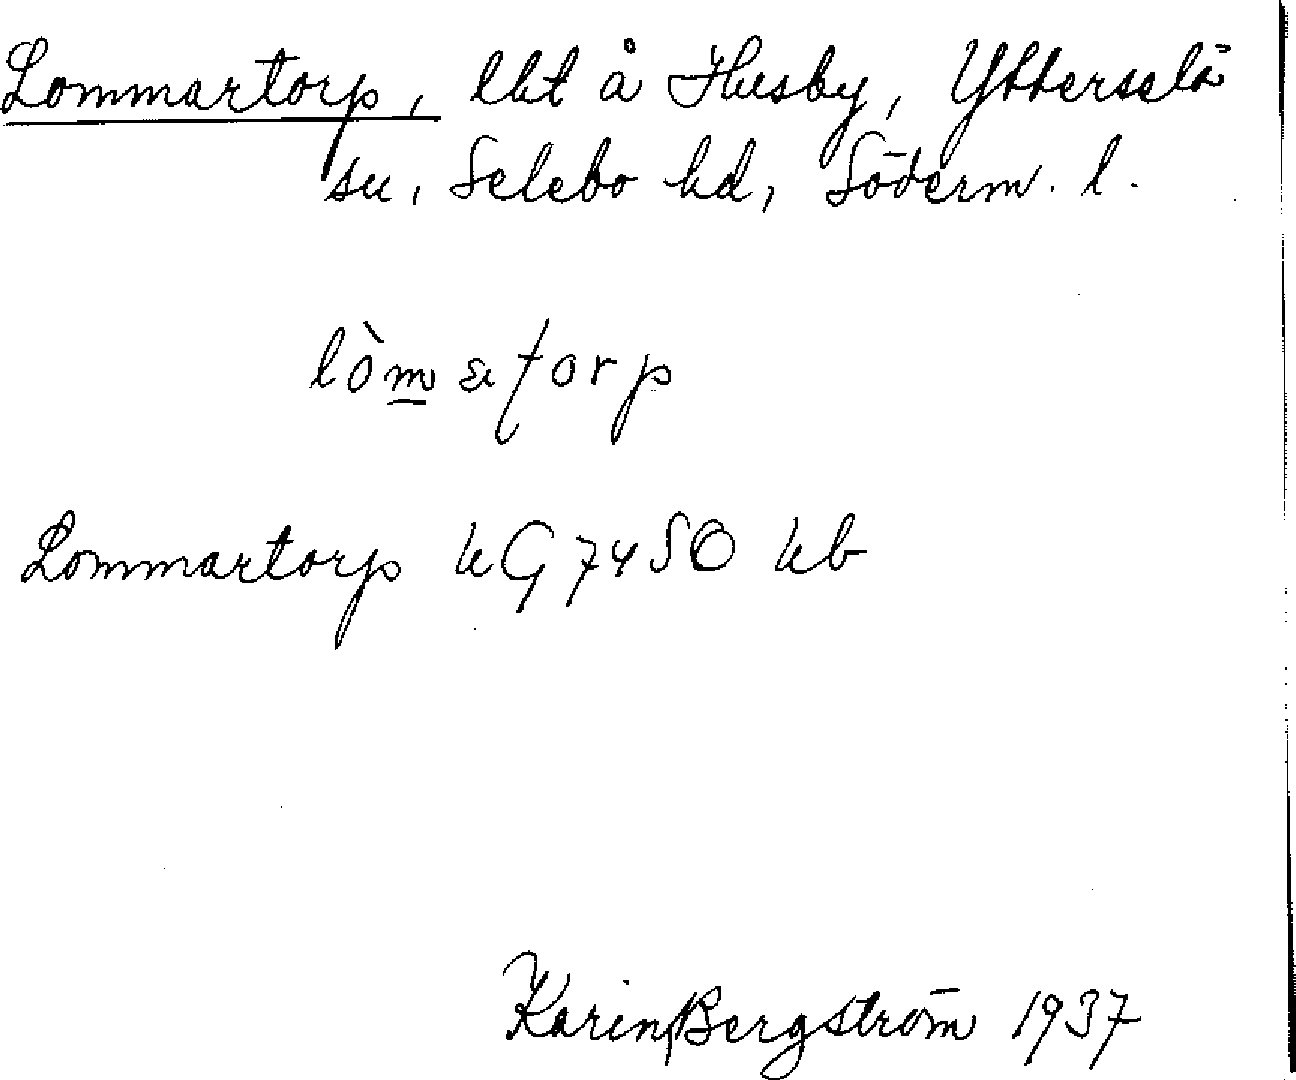 Lommartorp, lht å Husby, Ytterselö
sn, Selebo hd, Söderm. l.
lòmatorp
Lommartorp kG 74 SO kb
Karin Bergström 1937